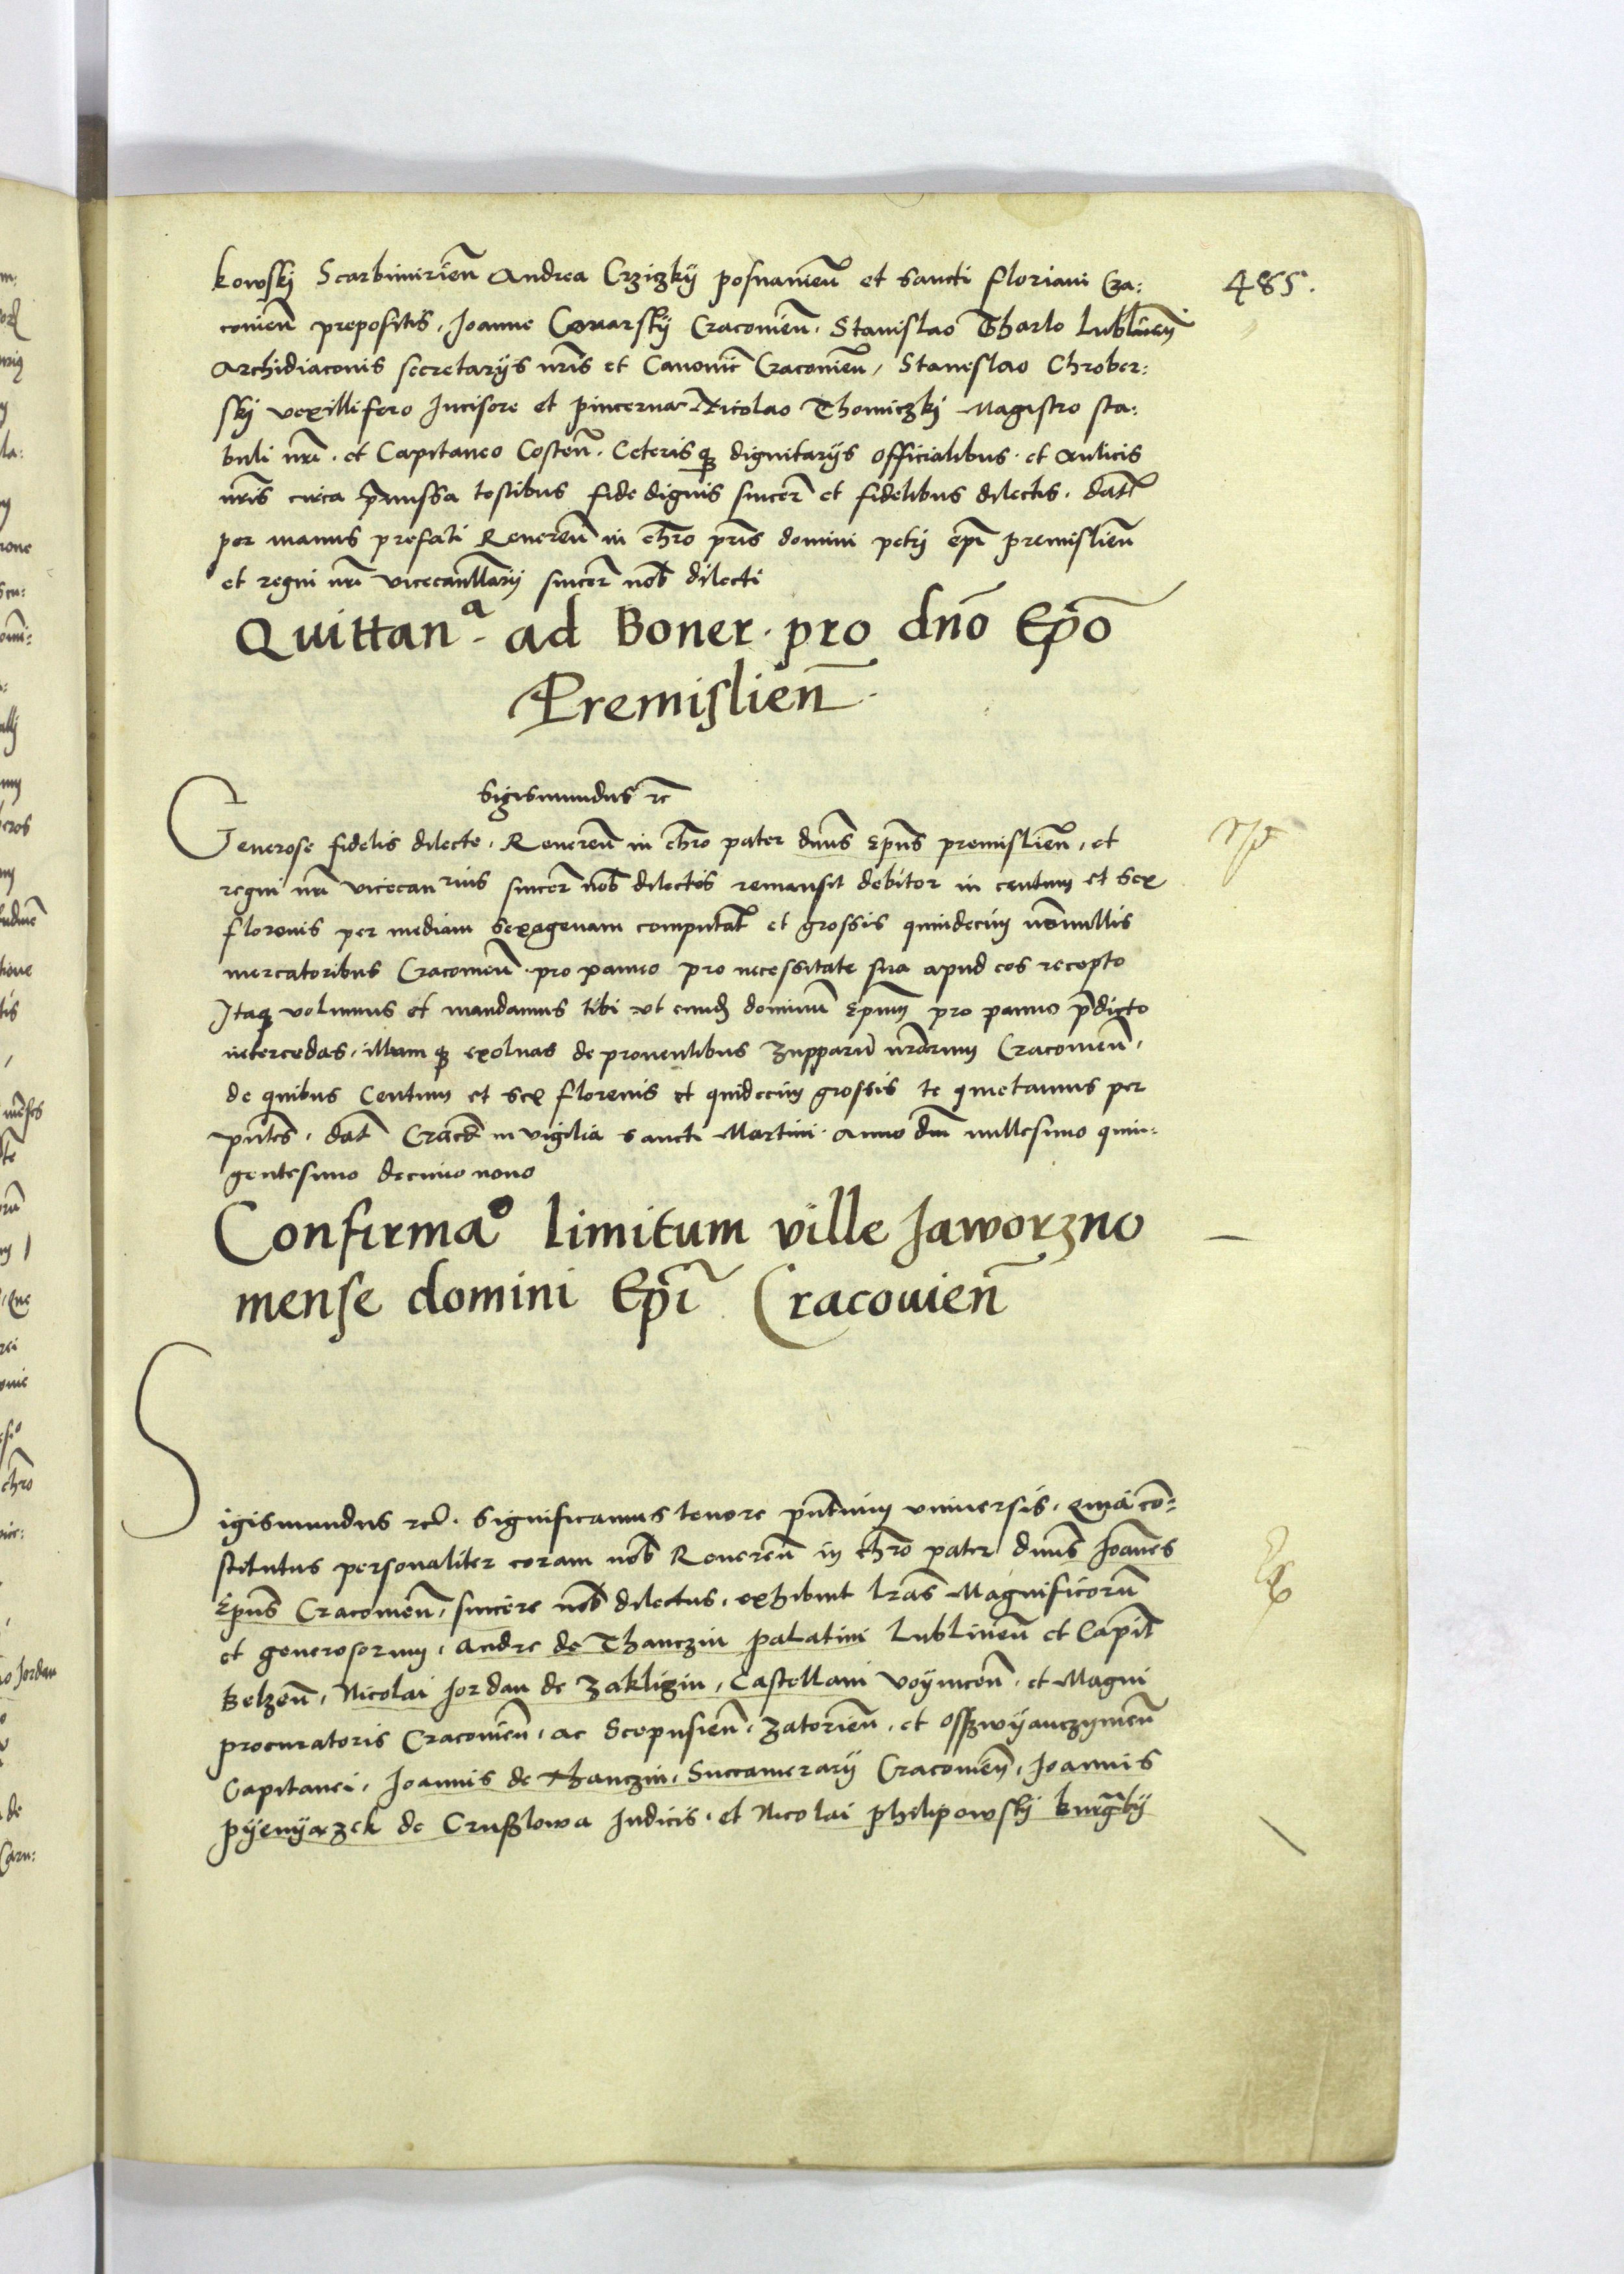 kowskj Scarbimirieñ Andrea Crziczkÿ posnanieñ et sancti floriani Cra:
485.
couieñ prepositis, Joanne Conarskÿ Cracouieñ. Stanislao Tharlo Lublineñ
Archidiaconis secretarÿs nr̃is et Canonic̃ Cracouieñ, Stanislao Chrober:
skj vexillifero Incisore et pincerna Nicolao Thomiczkj Magistro sta:
buli nr̃i. et Capitaneo Costeñ. Ceterisq dignitarÿs officialibus. et Aulicis
nr̃is circa p̃missa testibus fide dignis sincer̃ et fidelibus dilectis. dat̃
per manus prefati Reuereñ in chr̃o pr̃is domini petrj ep̃i premislieñ
et regni nr̃i vicecancellarÿ sincer̃ nob̃ dilecti
Quittanᵃ. ad Boner. pro dño Ep̃o
Premislieñ.
Sigismundus rc̃
Generose fidelis dilecte. Reuereñ in chr̃o pater dñus Ep̃us premislieñ, et
regni nr̃i vicecanrius sincer̃ nob̃ dilectus remansit debitor in centum et sex
florenis per mediam sexagenam computat̃ et grossis quindecim nõnullis
mercatoribus Cracouieñ. pro panno pro necessitate sua apud eos recepto
Itaq volumus et mandamus tibi vt eund dominũ Ep̃um pro panno p̃dicto
intercedas, illumq exoluas de prouentibus zupparũ nr̃arum Cracouieñ,
de quibus Centum et sex florenis et quidecim grossis te quietamus per
pñtes. dat̃ Crac̃ in vigilia sancti Martini. Anno dñi millesimo quin-
gentesimo decimo nono
Confirmaᵒ limitum ville Jaworzno
mense domini Ep̃i Cracouieñ
Sigismundus rc̃. Significamus tenore pñtium vniuersis. quia cõ-
stitutus personaliter coram nob̃ Reuereñ in chr̃o pater dñus Joañes
Ep̃us Cracouieñ, sincere nob̃ dilectus, exhibuit lr̃as Magnificorũ
et generosorum, Andre de Thanczin palatini Lublineñ et Capit̃
Belzeñ, Nicolai Jordan de Zakliczin, Castellani voÿniceñ. et Magni
procuratoris Cracouieñ, ac Scepusieñ, Zatorieñ, et Osszwÿanczimeñ
Capitanei, Joannis de Thanczin, Succamerarÿ Cracouieñ, Joannis
pÿenÿazek de Cruszlowa Judicis. et Nicolai philipowskÿ burg̃bÿ